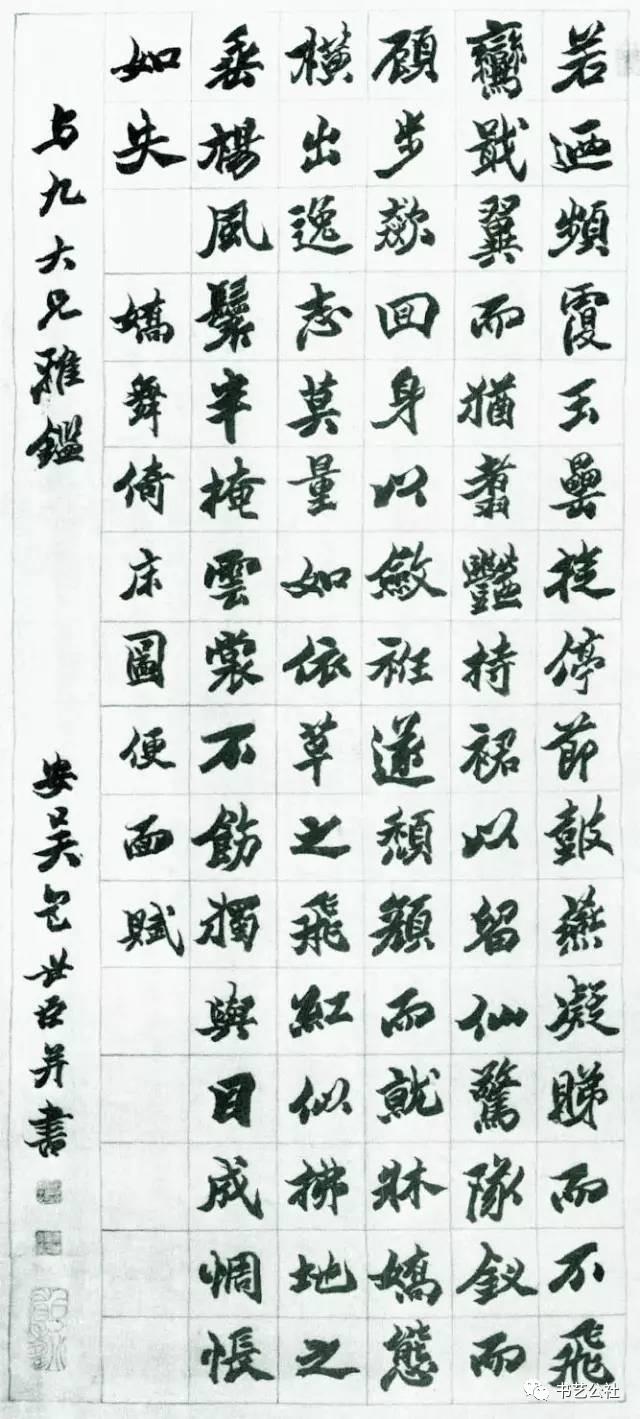 若迺頻覆玉罍旋停節鼓燕凝睇而不飛
鸞戢翼而猶翥豔持裾以留仙驚隊釵而
顧步欻回身以斂袵遂頳顏而就牀嬌態
橫出逸志莫量如依草之飛紅似拂地之
垂楊風鬟半掩雲裳不飭獨與目成惆悵
如失 嬌舞倚床圖便面賦
与九大兄雅鑑 安吴包世臣并書
书艺公社